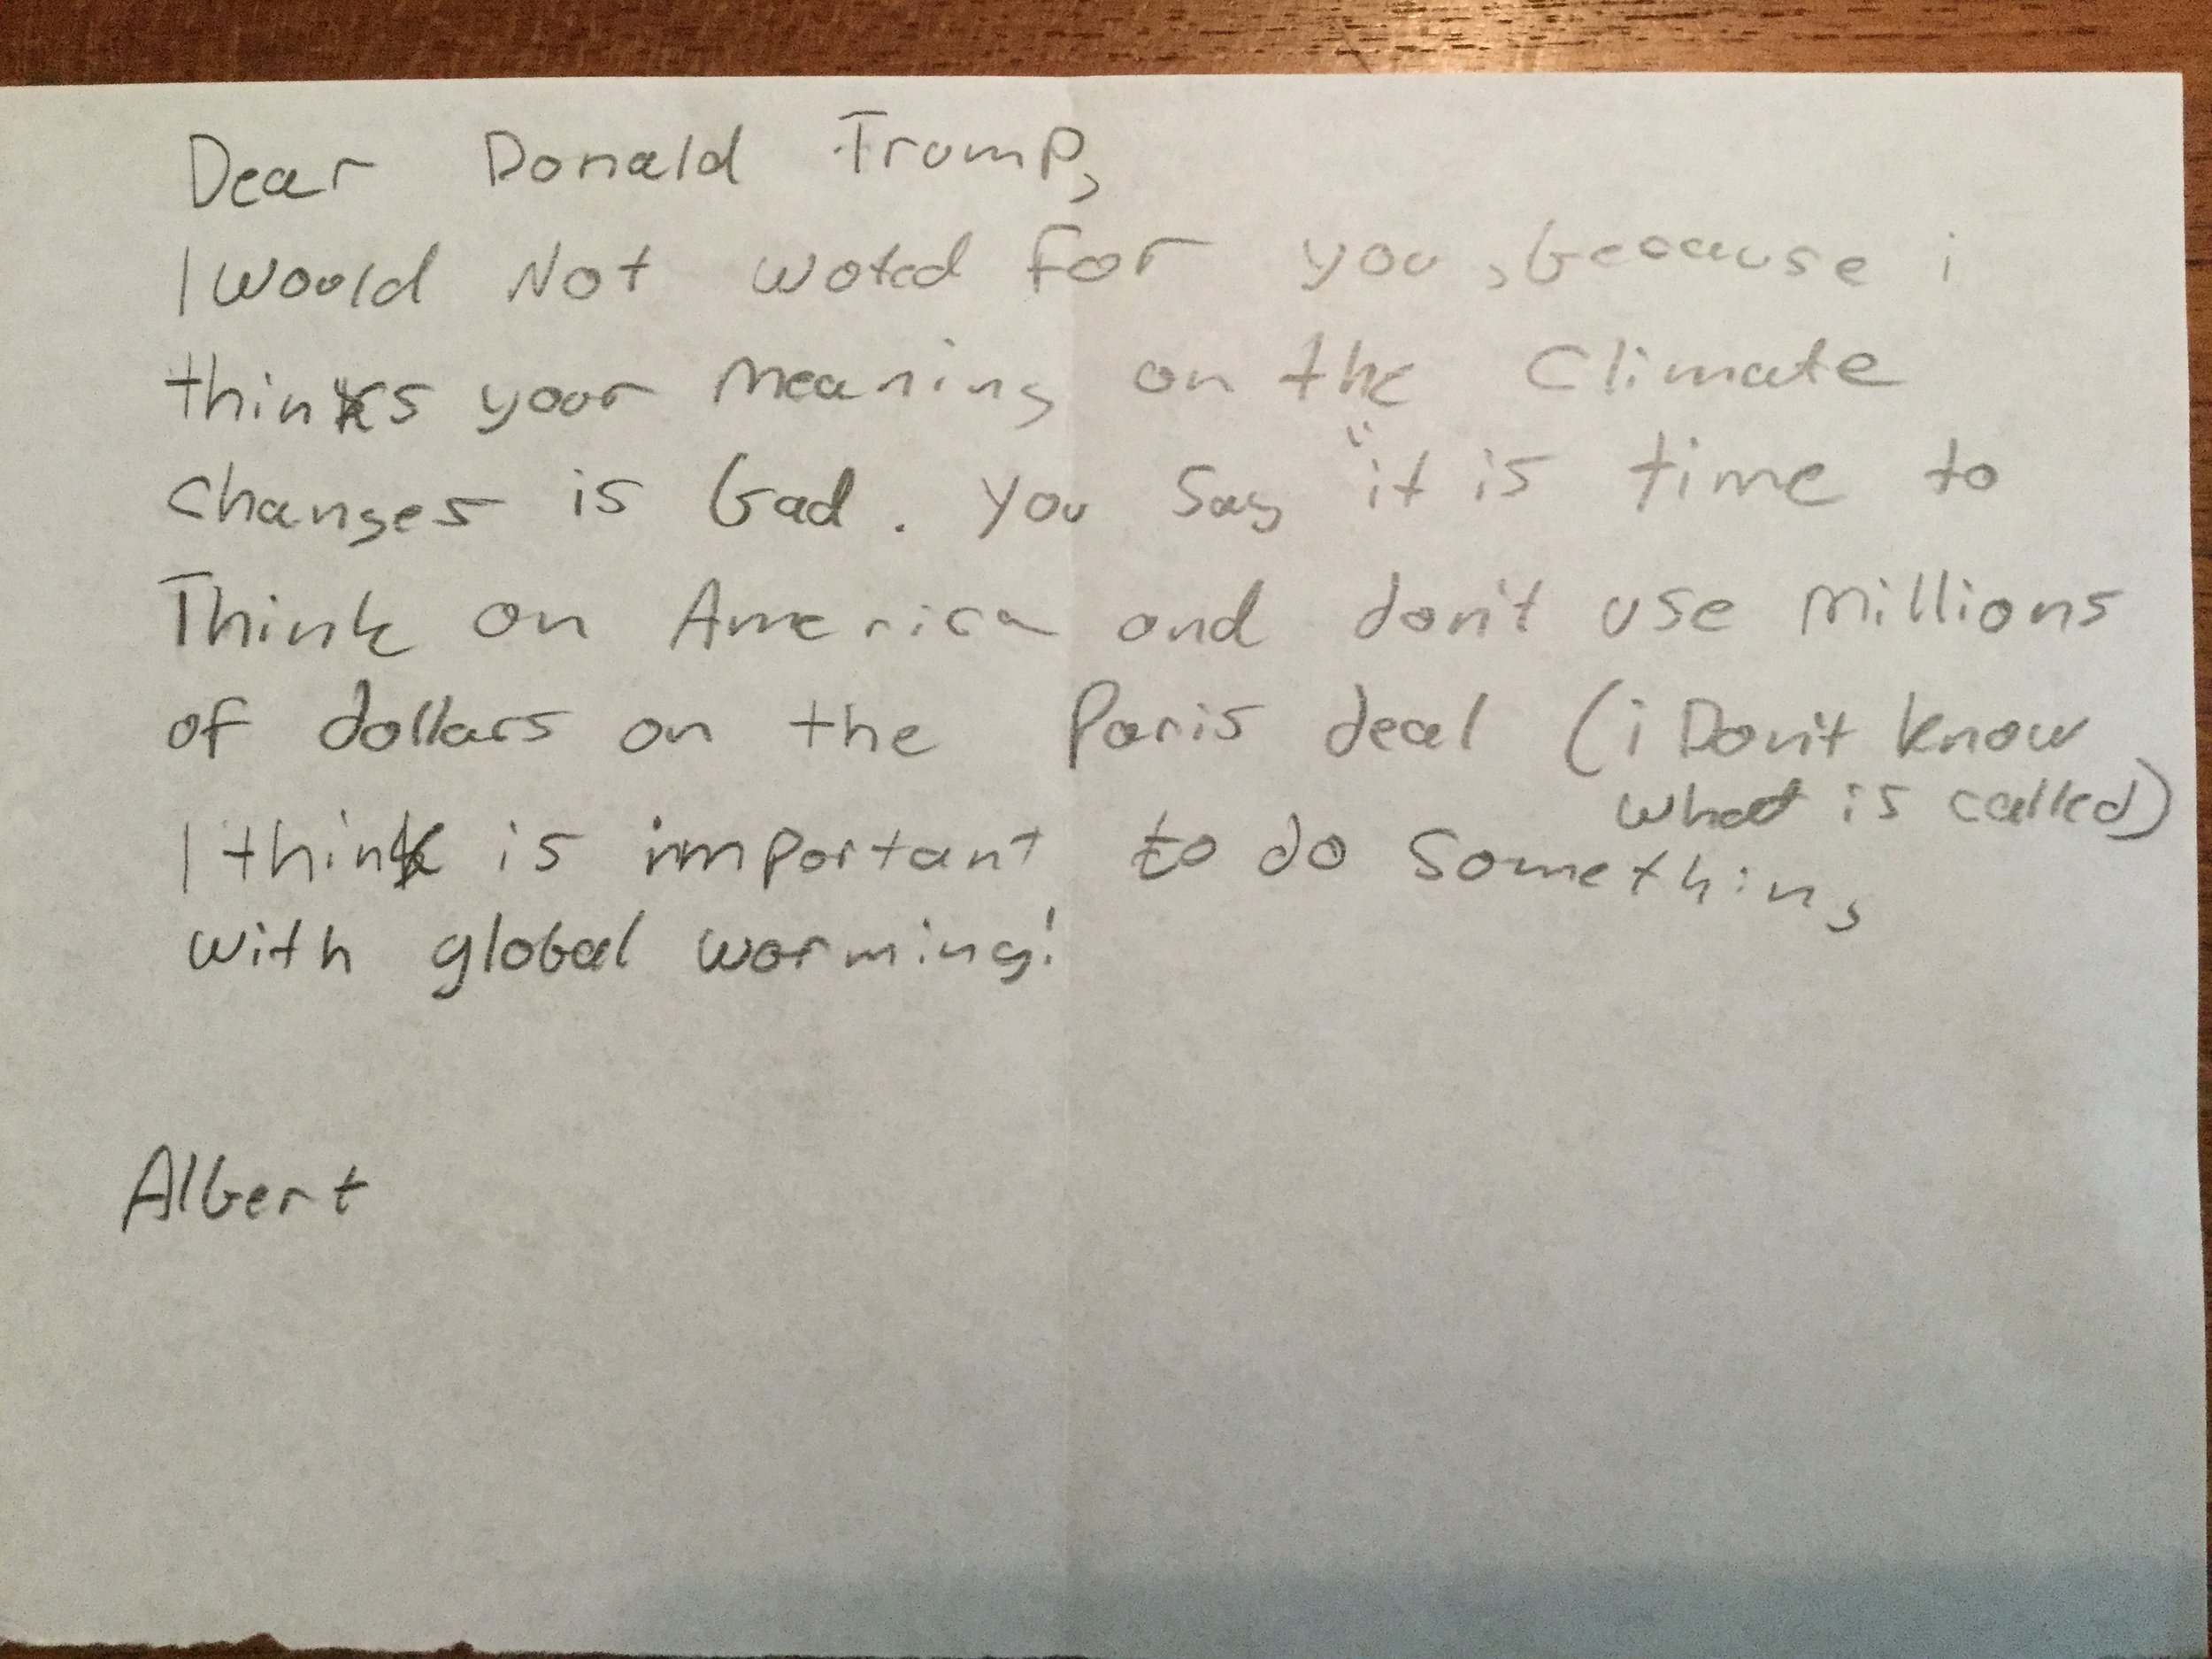 Dear Donald Trump,
I would Not woted For you, because i
thinks your meaning on the Climate
changes is bad. You say "it is time to
Think on America and don't use millions
of dollars on the Paris deal (i Don't know
what is called)
I think is important to do something
with global warming!
Albert